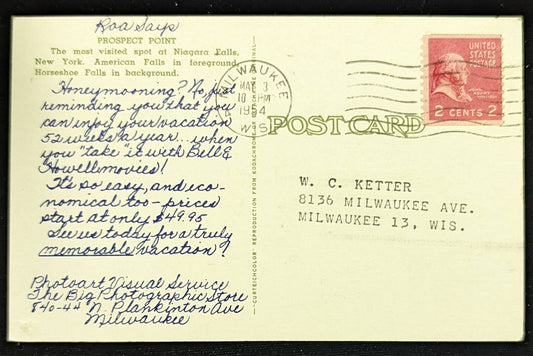 Roa Says
PROSPECT POINT
The most visited spot at Niagara Falls,
New York. American Falls in foreground,
Horseshoe Falls in background.
Honeymooning? No, just
reminding you that you
can enjoy your vacation
52 weeks a year... when
you "take" it with Bell &
Howell movies!
It's so easy, and eco-
nomical too - prices
start at only $49.95
See us today for a truly
memorable vacation?
Photoart Visual Service
The Big Photographic Store
840-44 N. Plankinton Ave
Milwaukee
CURTEICHCOLOR REPRODUCTION FROM KODACHROME
MILWAUKEE
MAY 3
10 PM
1954
WIS
UNITED
STATES
POSTAGE
2 CENTS 2
POST CARD
W. C. KETTER
8136 MILWAUKEE AVE.
MILWAUKEE 13, WIS.